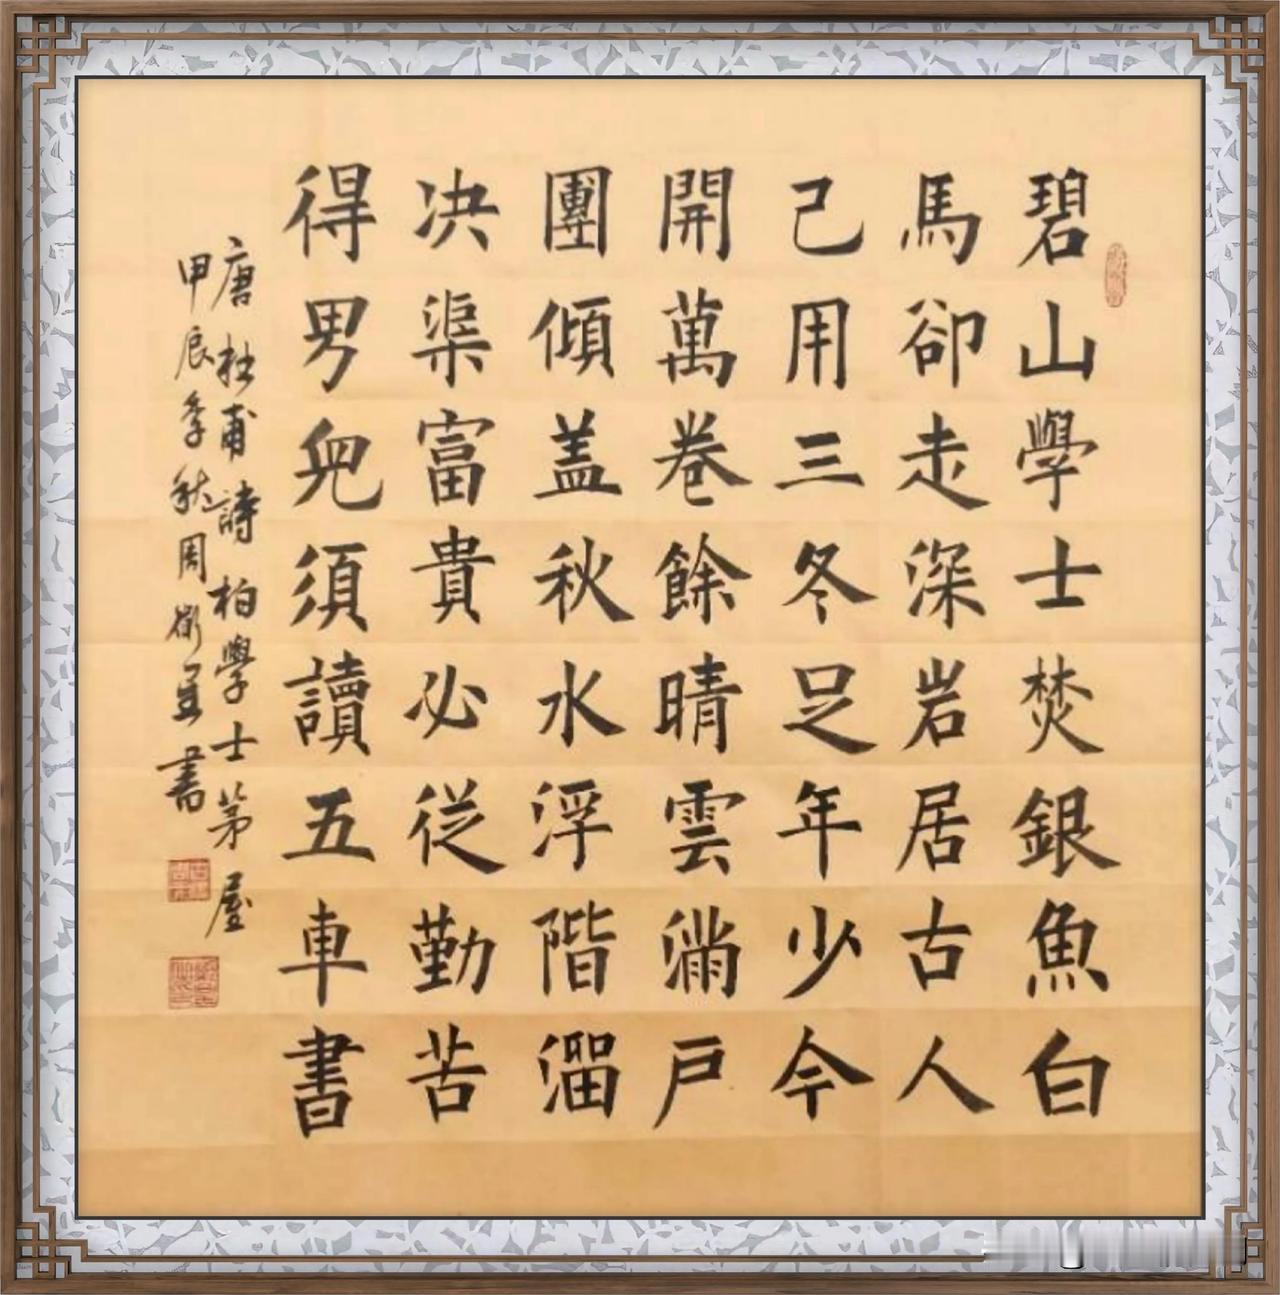 碧山學士焚銀魚白
馬卻走深岩居古人
己用三冬足年少今
開萬卷餘晴雲滿戶
團傾盖秋水浮階溜
决渠富貴必從勤苦
得男兒須讀五車書
唐杜甫詩柏學士茅屋
甲辰季秋周書